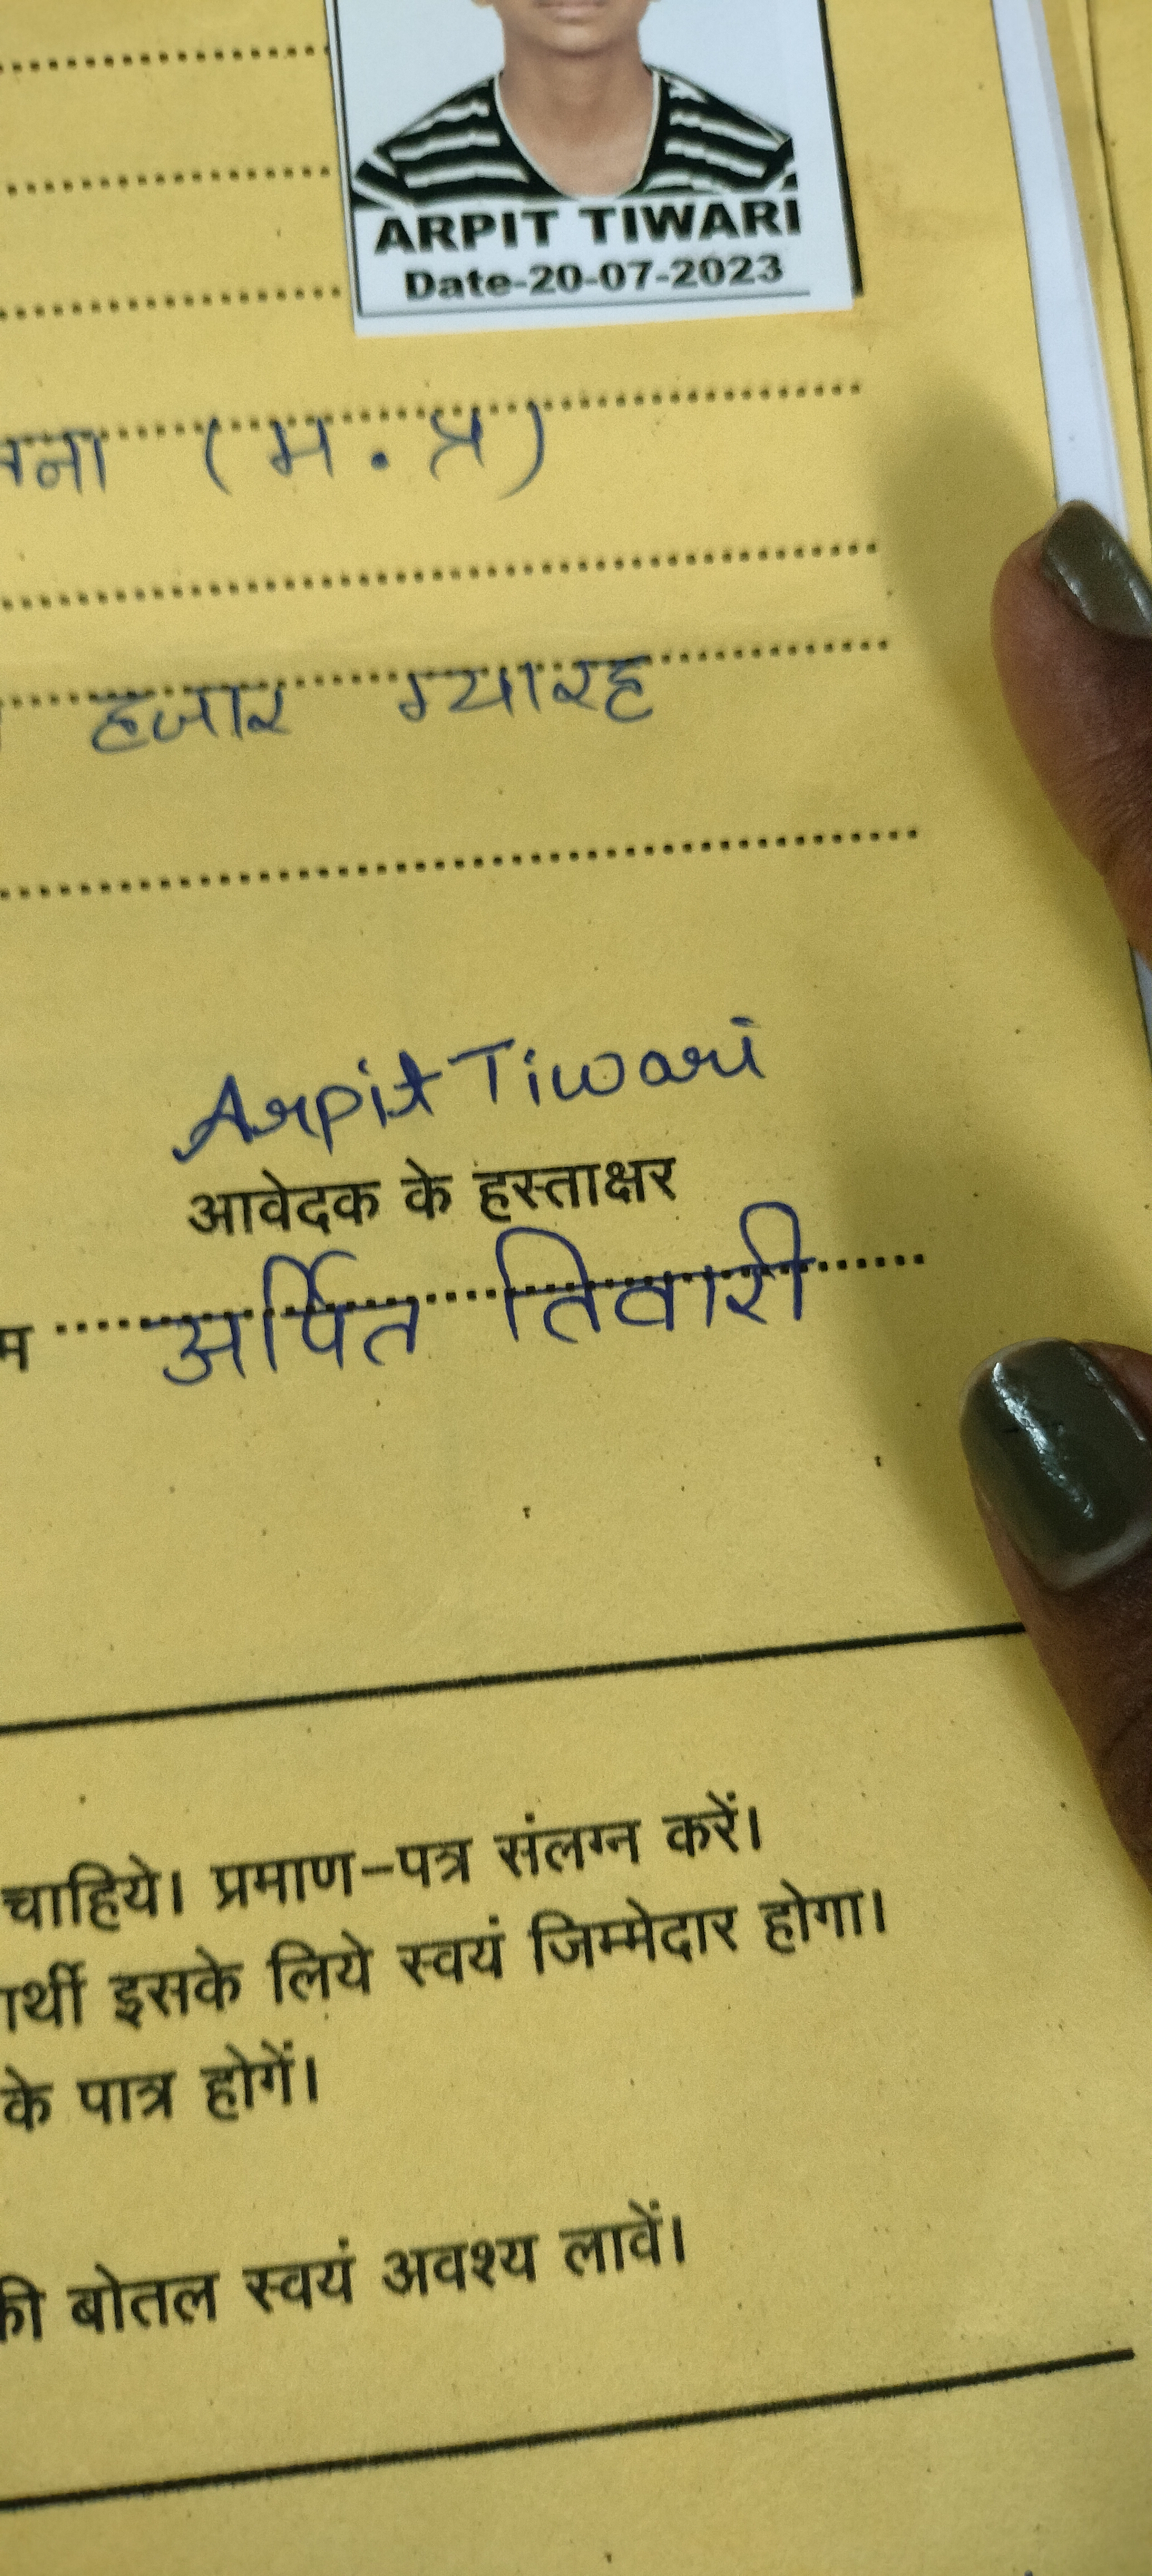 ARPIT TIWARI
Date-20-07-2023
(म.प्र)
हजार ग्यारह
Arpit Tiwari
आवेदक के हस्ताक्षर
अर्पित तिवारी
चाहिये। प्रमाण–पत्र संलग्न करें।
इसके लिये स्वयं जिम्मेदार होगा।
के पात्र होगें।
की बोतल स्वयं अवश्य लावें।